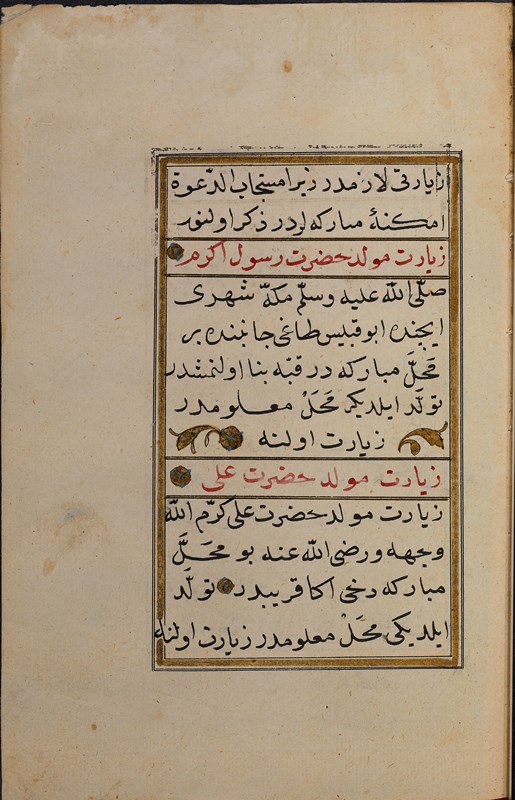 زيارتی لازمدر زيرا مستجاب الدّعوة
امكنۀ مباركه لردر ذكر اولنور
زيارت مولد حضرت رسول اكرم
صلّی اللّه عليه وسلّم مكّه شهری
ايچنده ابو قبيس طاغی جانبنده بر
محلّ مباركه در قبّه بنا اولنمشدر
تولّد ايلديكی محلّ معلومدر
زيارت اولنه
زيارت مولد حضرت علی
زيارت مولد حضرت علی كرّم اللّه
وجهه ورضی اللّه عنه بو محلّ
مباركه دخی اكا قريبدر تولّد
ايلديكی محلّ معلومدر زيارت اولنه